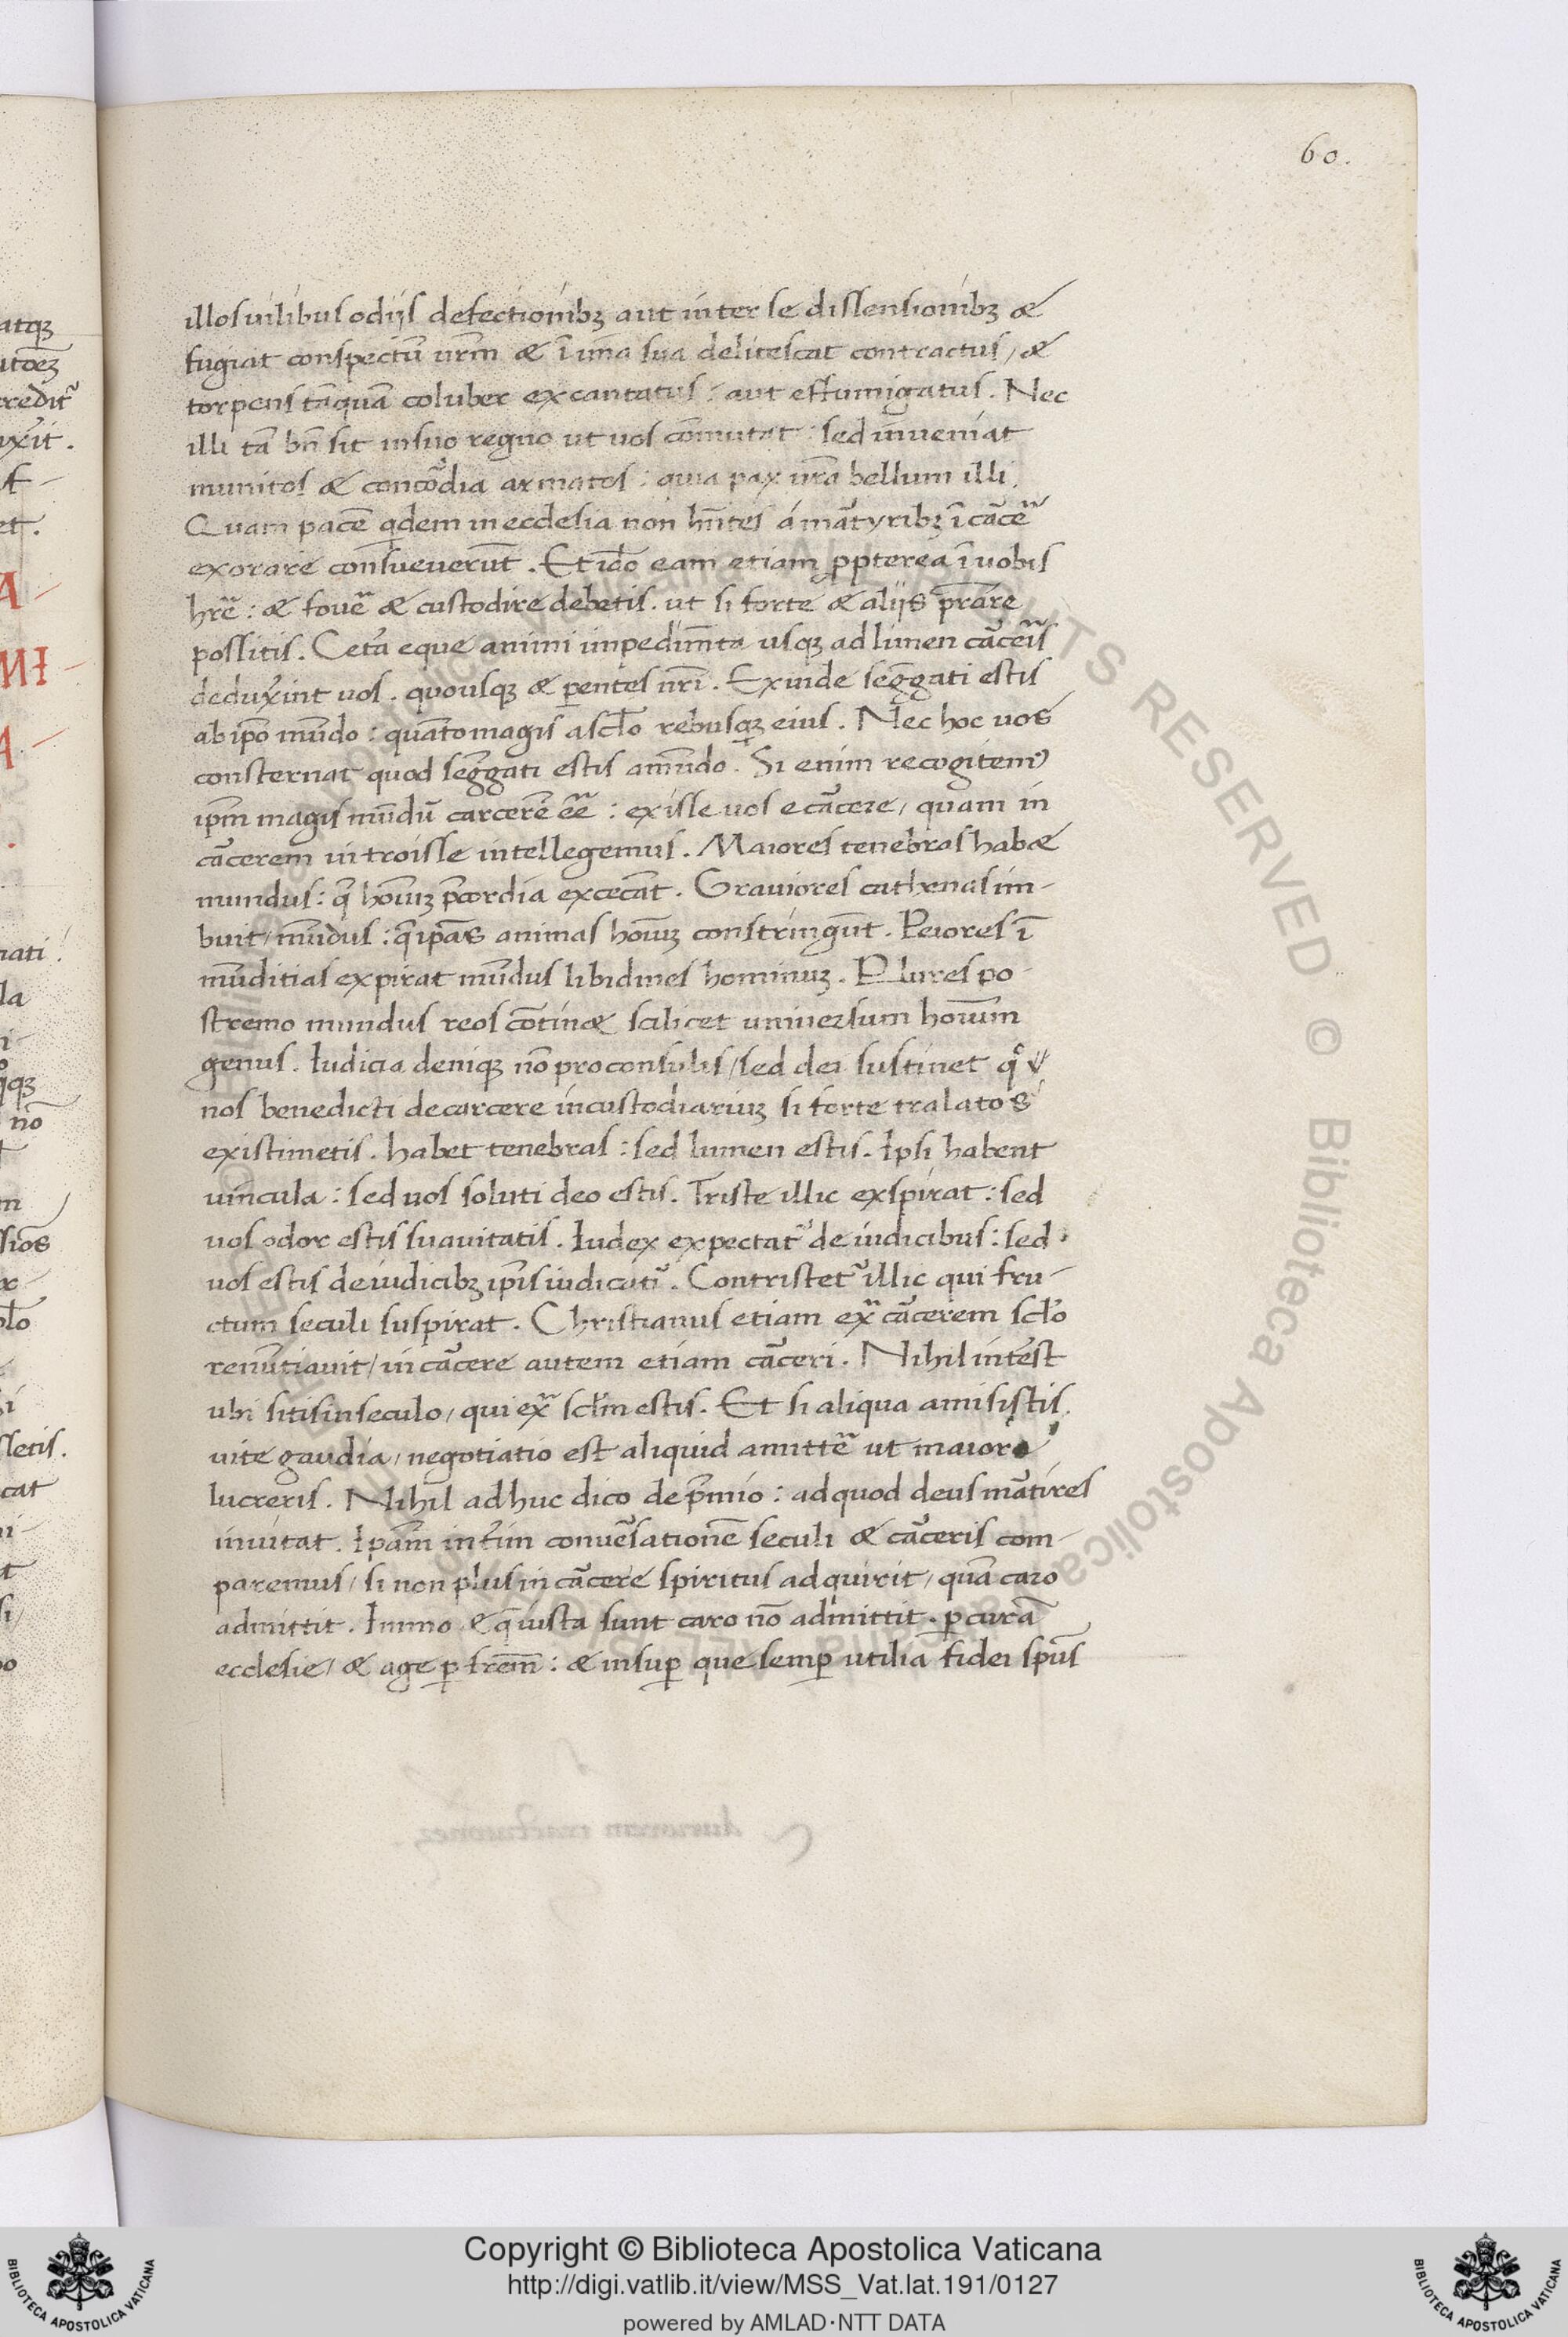 60.
illos vilibus odijs defectionibꝫ aut inter se dissensionibꝫ &
fugiat conspectū vrm̄ & ī ima sua delitescat contractus / &
torpens tāquā coluber excantatus : aut effumigatus . Nec
illi tā bn̄ sit in suo regno ut vos cōmutat : sed inveniat
munitos & concōdia armatos : quia pax vrā bellum illi .
Quam pacē qdem in ecclesia non hn̄tes á mātyribꝫ ī cāce͛
exorare consueverūt . Et iđo eam etiam ꝓpterea ī vobis
hr̄e : & fove͛ & custodire debetis . ut si forte & alijs prāre
possitis . Cet͛a eque animi impedim̄ta usqꝫ ad limen cāce͛is
dedux͛int vos . quousqꝫ & ꝑentes nr̄i . Exinde seg͛gati estis
ab ip̄o mūdo : quāto magis a scło rebusqꝫ eius . Nec hoc vos
consternat quod seg͛gati estis a mūdo . Si enim recogitemꝰ
ip̄m magis mūdū carcerē ēe͛ : exisse vos e cācere / quam in
cācerem introisse intellegemus . Maiores tenebras hab&
mundus : q̄ hōıuꝫ p̄cordia excecāt . Graviores cathenas im-
buit / mūdus : q̄ ip̄as animas hōıuꝫ constringūt . Peiores ī
mūditias expirat mūdus libidines hominuꝫ . Plures po-
stremo mundus reos cōtin& scilicet universum hoıum̄
genus . Iudicia deniqꝫ nō proconsulis / sed dei sustinet qͦ v
nos benedicti de carcere in custodiariuꝫ si forte tralatos
existimetis . habet tenebras : sed lumen estis . Ipsi habent
vincula : sed vos soluti deo estis . Triste illic exspirat : sed
vos odor estis suavitatis . Iudex expectat͛ de iudicibus : sed
vos estis de iudicibꝫ ip̄is iudicāti͛ . Contristet͛ illic qui fru-
ctum seculi suspirat . Christianus etiam ex͛ cācerem scło
renūtiavit / in cācere autem etiam cāceri . Nihil int͛est
ubi sitis in seculo / qui ex͛ scłm estis . Et si aliqua amisistis
vite gaudia / negotiatio est aliquid amitte͛ ut maiora
lucreris . Nihil adhuc dico de p̄mio : ad quod deus mātires
invitat . Ip̄am int͛im conve͛sationē seculi & cāceris com-
paremus / si non plus in cācere spiritus adquirit / quā caro
admittit . Immo & q̄ iusta sunt caro nō admittit . ꝑ curā
ecclesie / & age ꝑ frēm : & insuꝑ que semꝑ utilia fidei sp̄us
Copyright © Biblioteca Apostolica Vaticana
http://digi.vatlib.it/view/MSS_Vat.lat.191/0127
powered by AMLAD·NTT DATA